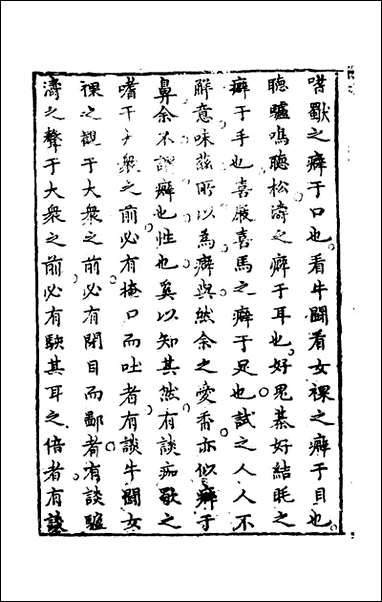 嗜歜之癖于口也看牛闘看女裸之癖于目也
聽驢鳴聽松濤之癖于耳也好鬼綦好結眊之
癖于手也喜屐喜馬之癖于足也試之人人不
觧意味茲所以為癖與然余之愛香亦似癖于
鼻余不謂癖也性也奚以知其然有談痂歜之
嗜于大衆之前必有掩口而吐者有談牛闘女
裸之觀于大衆之前必有閉目而鄙者有談驢
濤之聲于大衆之前必有駭其耳之倍者有談